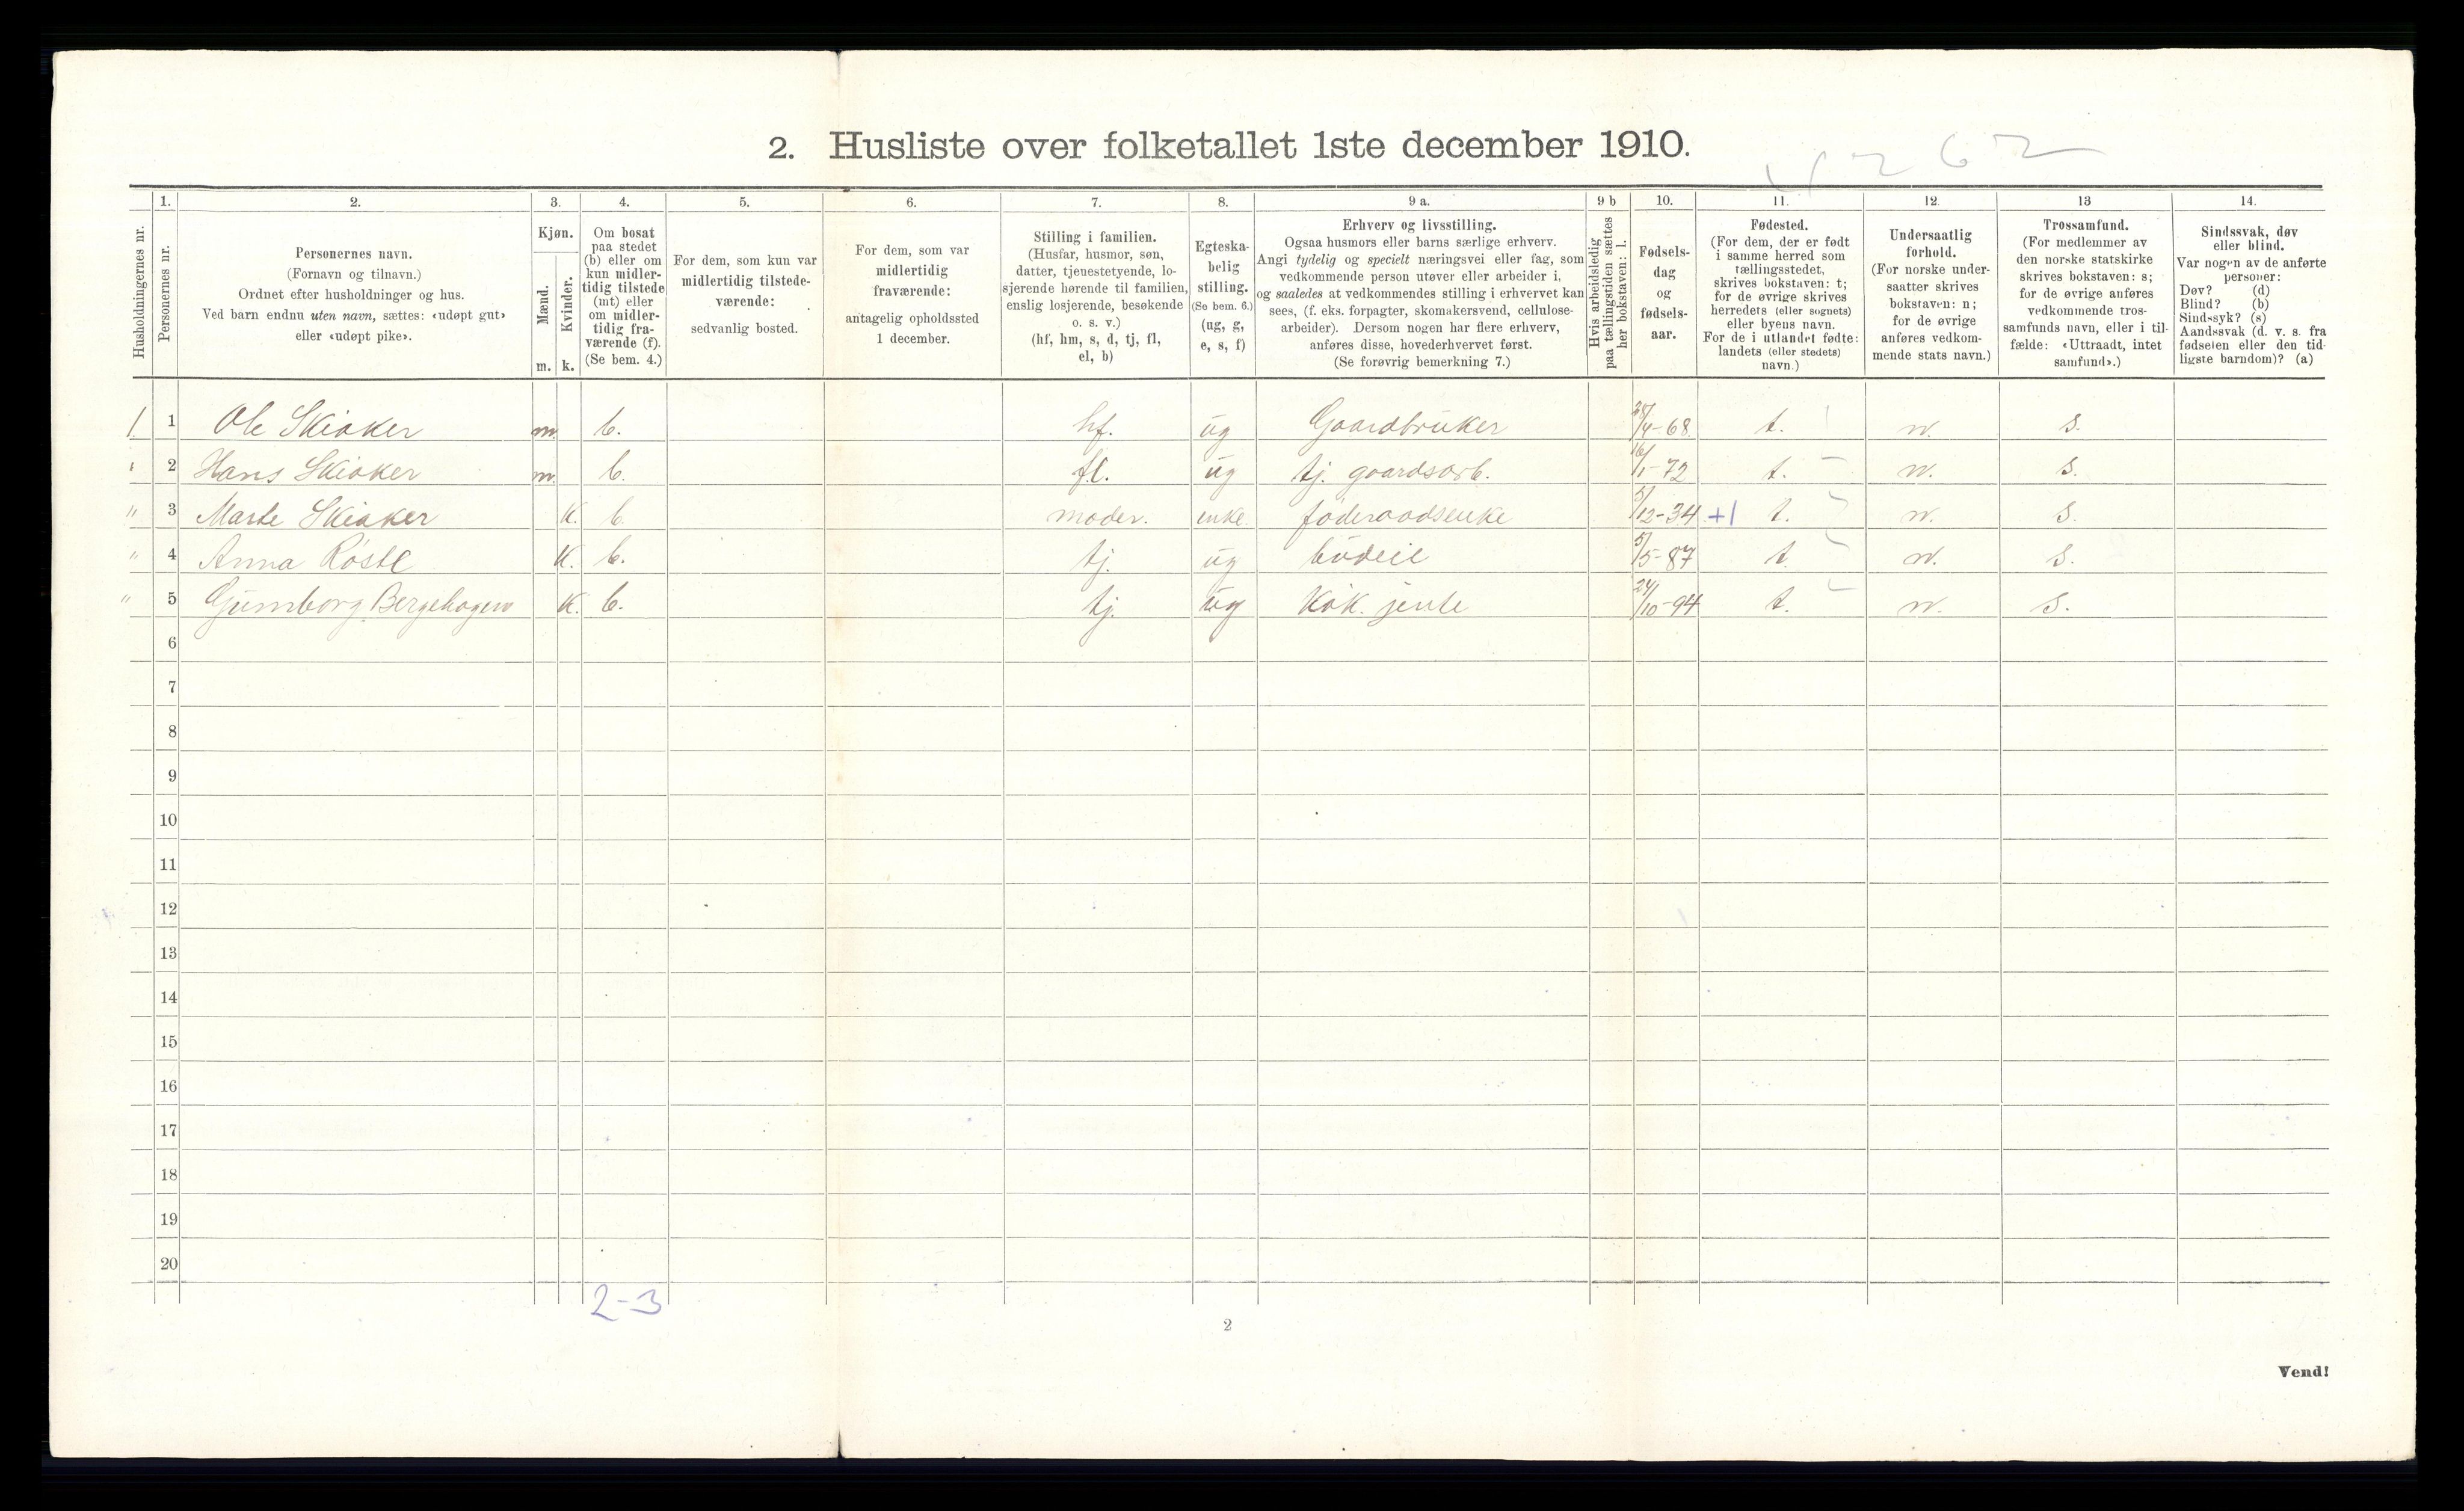 2. Husliste over folketallet 1ste december 1910.
Husholdningernes nr.
1.
Personernes nr.
2.
Personernes navn.
(Fornavn og tilnavn.)
Ordnet efter husholdninger og hus.
Ved barn endnu uten navn, sættes: «udøpt gut»
eller «udøpt pike».
3.
Kjøn.
Mænd.
Kvinder.
m. k.
4.
Om bosat
paa stedet
(b) eller om
kun midler-
tidig tilstede
(mt) eller
om midler-
tidig fra-
værende (f).
(Se bem. 4.)
5.
For dem, som kun var
midlertidig tilstede-
værende:
sedvanlig bosted.
6.
For dem, som var
midlertidig
fraværende:
antagelig opholdssted
1 december.
7.
Stilling i familien.
(Husfar, husmor, søn,
datter, tjenestetyende, lo-
sjerende hørende til familien,
enslig losjerende, besøkende
o. s. v.)
(hf, hm, s, d, tj, fl,
el, b)
8.
Egteska-
belig
stilling.
(Se bem. 6.)
(ug, g,
e, s, f)
9 a.
Erhverv og livsstilling.
Ogsaa husmors eller barns særlige erhverv.
Angi tydelig og specielt næringsvei eller fag, som
vedkommende person utøver eller arbeider i,
og saaledes at vedkommendes stilling i erhvervet kan
sees, (f. eks. forpagter, skomakersvend, cellulose-
arbeider). Dersom nogen har flere erhverv,
anføres disse, hovederhvervet først.
(Se forøvrig bemerkning 7.)
9 b
Hvis arbeidsledig
paa tællingstiden sættes
her bokstaven: l.
10.
Fødsels-
dag
og
fødsels-
aar.
11.
Fødested.
(For dem, der er født
i samme herred som
tællingsstedet,
skrives bokstaven: t;
for de øvrige skrives
herredets (eller sognets)
eller byens navn.
For de i utlandet fødte:
landets (eller stedets)
navn.)
12.
Undersaatlig
forhold.
(For norske under-
saatter skrives
bokstaven: n;
for de øvrige
anføres vedkom-
mende stats navn.)
13
Trossamfund.
(For medlemmer av
den norske statskirke
skrives bokstaven: s;
for de øvrige anføres
vedkommende tros-
samfunds navn, eller i til-
fælde: «Uttraadt, intet
samfund».)
14.
Sindssvak, døv
eller blind.
Var nogen av de anførte
personer:
Døv? (d)
Blind? (b)
Sindssyk? (s)
Aandssvak (d. v. s. fra
fødselen eller den tid-
ligste barndom)? (a)
1. 1 Ole Skiaker m. b. hf. ug Gaardbruker /4-68 t. n. s.
2 Hans Skiaker m. b. fl. ug tj. gaardsarb. 16/1-72 t. n. s.
" 3 Marte Skiaker K. b. moder. enke føderaadsenke 5/12-34 +1 t. n. s.
" 4 Anna Röste K. b. tj. ug budeie 5/5-87 t. n. s.
" 5 Gunborg Bergehagen K. b. tj. ug Kök. jente 24/10-94 t. n. s.
6
7
8
9
10
11
12
13
14
15
16
17
18
19
20
2-3
2
Vend!